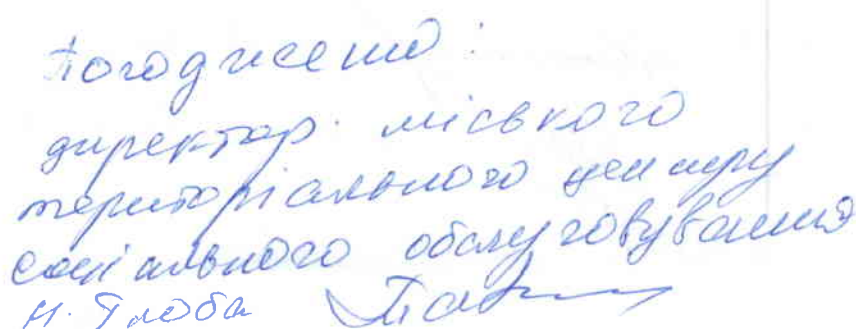 Погоджено:
директор міського
територіального центру
соціального обслуговування
Н. Глоба